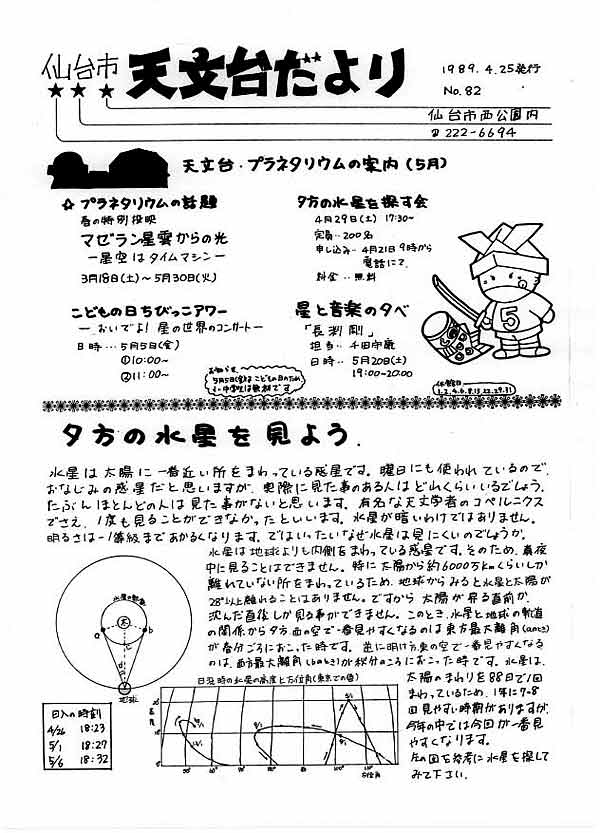 仙台市 天文台だより
1989.4.25発行
No.82
仙台市西公園内
☎222-6694
天文台・プラネタリウムの案内(5月)
☆プラネタリウムの話題
春の特別投映
マゼラン星雲からの光
―星空はタイムマシン―
3月18日(土)～5月30日(火)
こどもの日ちびっこアワー
―おいでよ!星の世界のコンサート―
日時…5月5日(金)
①10:00～
②11:00～
夕方の水星を探す会
4月29日(土) 17:30～
定員‥200名
申し込み‥4月21日9時から
電話にて.
料金‥無料
星と音楽の夕べ
「長渕剛」
担当‥千田守康
日時‥5月20日(土)
19:00～20:00
お知らせ
5月5日(金)はこどもの日のため
小・中学生は無料です
5
休館日
夕方の水星を見よう.
水星は太陽に一番近い所をまわっている惑星です。曜日にも使われているので、
おなじみの惑星だと思いますが、実際に見た事のある人はどれくらいいるでしょう。
たぶんほとんどの人は見た事がないと思います。有名な天文学者のコペルニクス
でさえ、1度も見ることができなかったといいます。水星が暗いわけではありません。
明るさは-1等級まであかるくなります。ではいったいなぜ水星は見にくいのでしょうか。
水星は地球よりも内側をまわっている惑星です。そのため、真夜
中に見ることはできません。特に太陽から約6000万kmくらいしか
離れていない所をまわっているため、地球からみると水星と太陽が
28°以上離れることはありません。ですから太陽が昇る直前か、
沈んだ直後しか見る事ができません。このとき、水星と地球の軌道
の関係から夕方西の空で一番見やすくなるのは東方最大離角(aのとき)
が春分ごろにおこった時です。逆に明け方東の空で一番見やすくなる
のは、西方最大離角(bのとき)が秋分のころにおこった時です。水星は、
太陽のまわりを88日で1回
まわっているため、1年に7~8
回見やすい時期がありますが、
今年の中では今回が一番見
やすくなります。
左の図を参考に水星を探して
みて下さい。
水星の軌道
a
b
地球
日没時の水星の高度と方位角(東京での値)
高度
方位角
日入の時刻
4/26 18:23
5/1 18:27
5/6 18:32